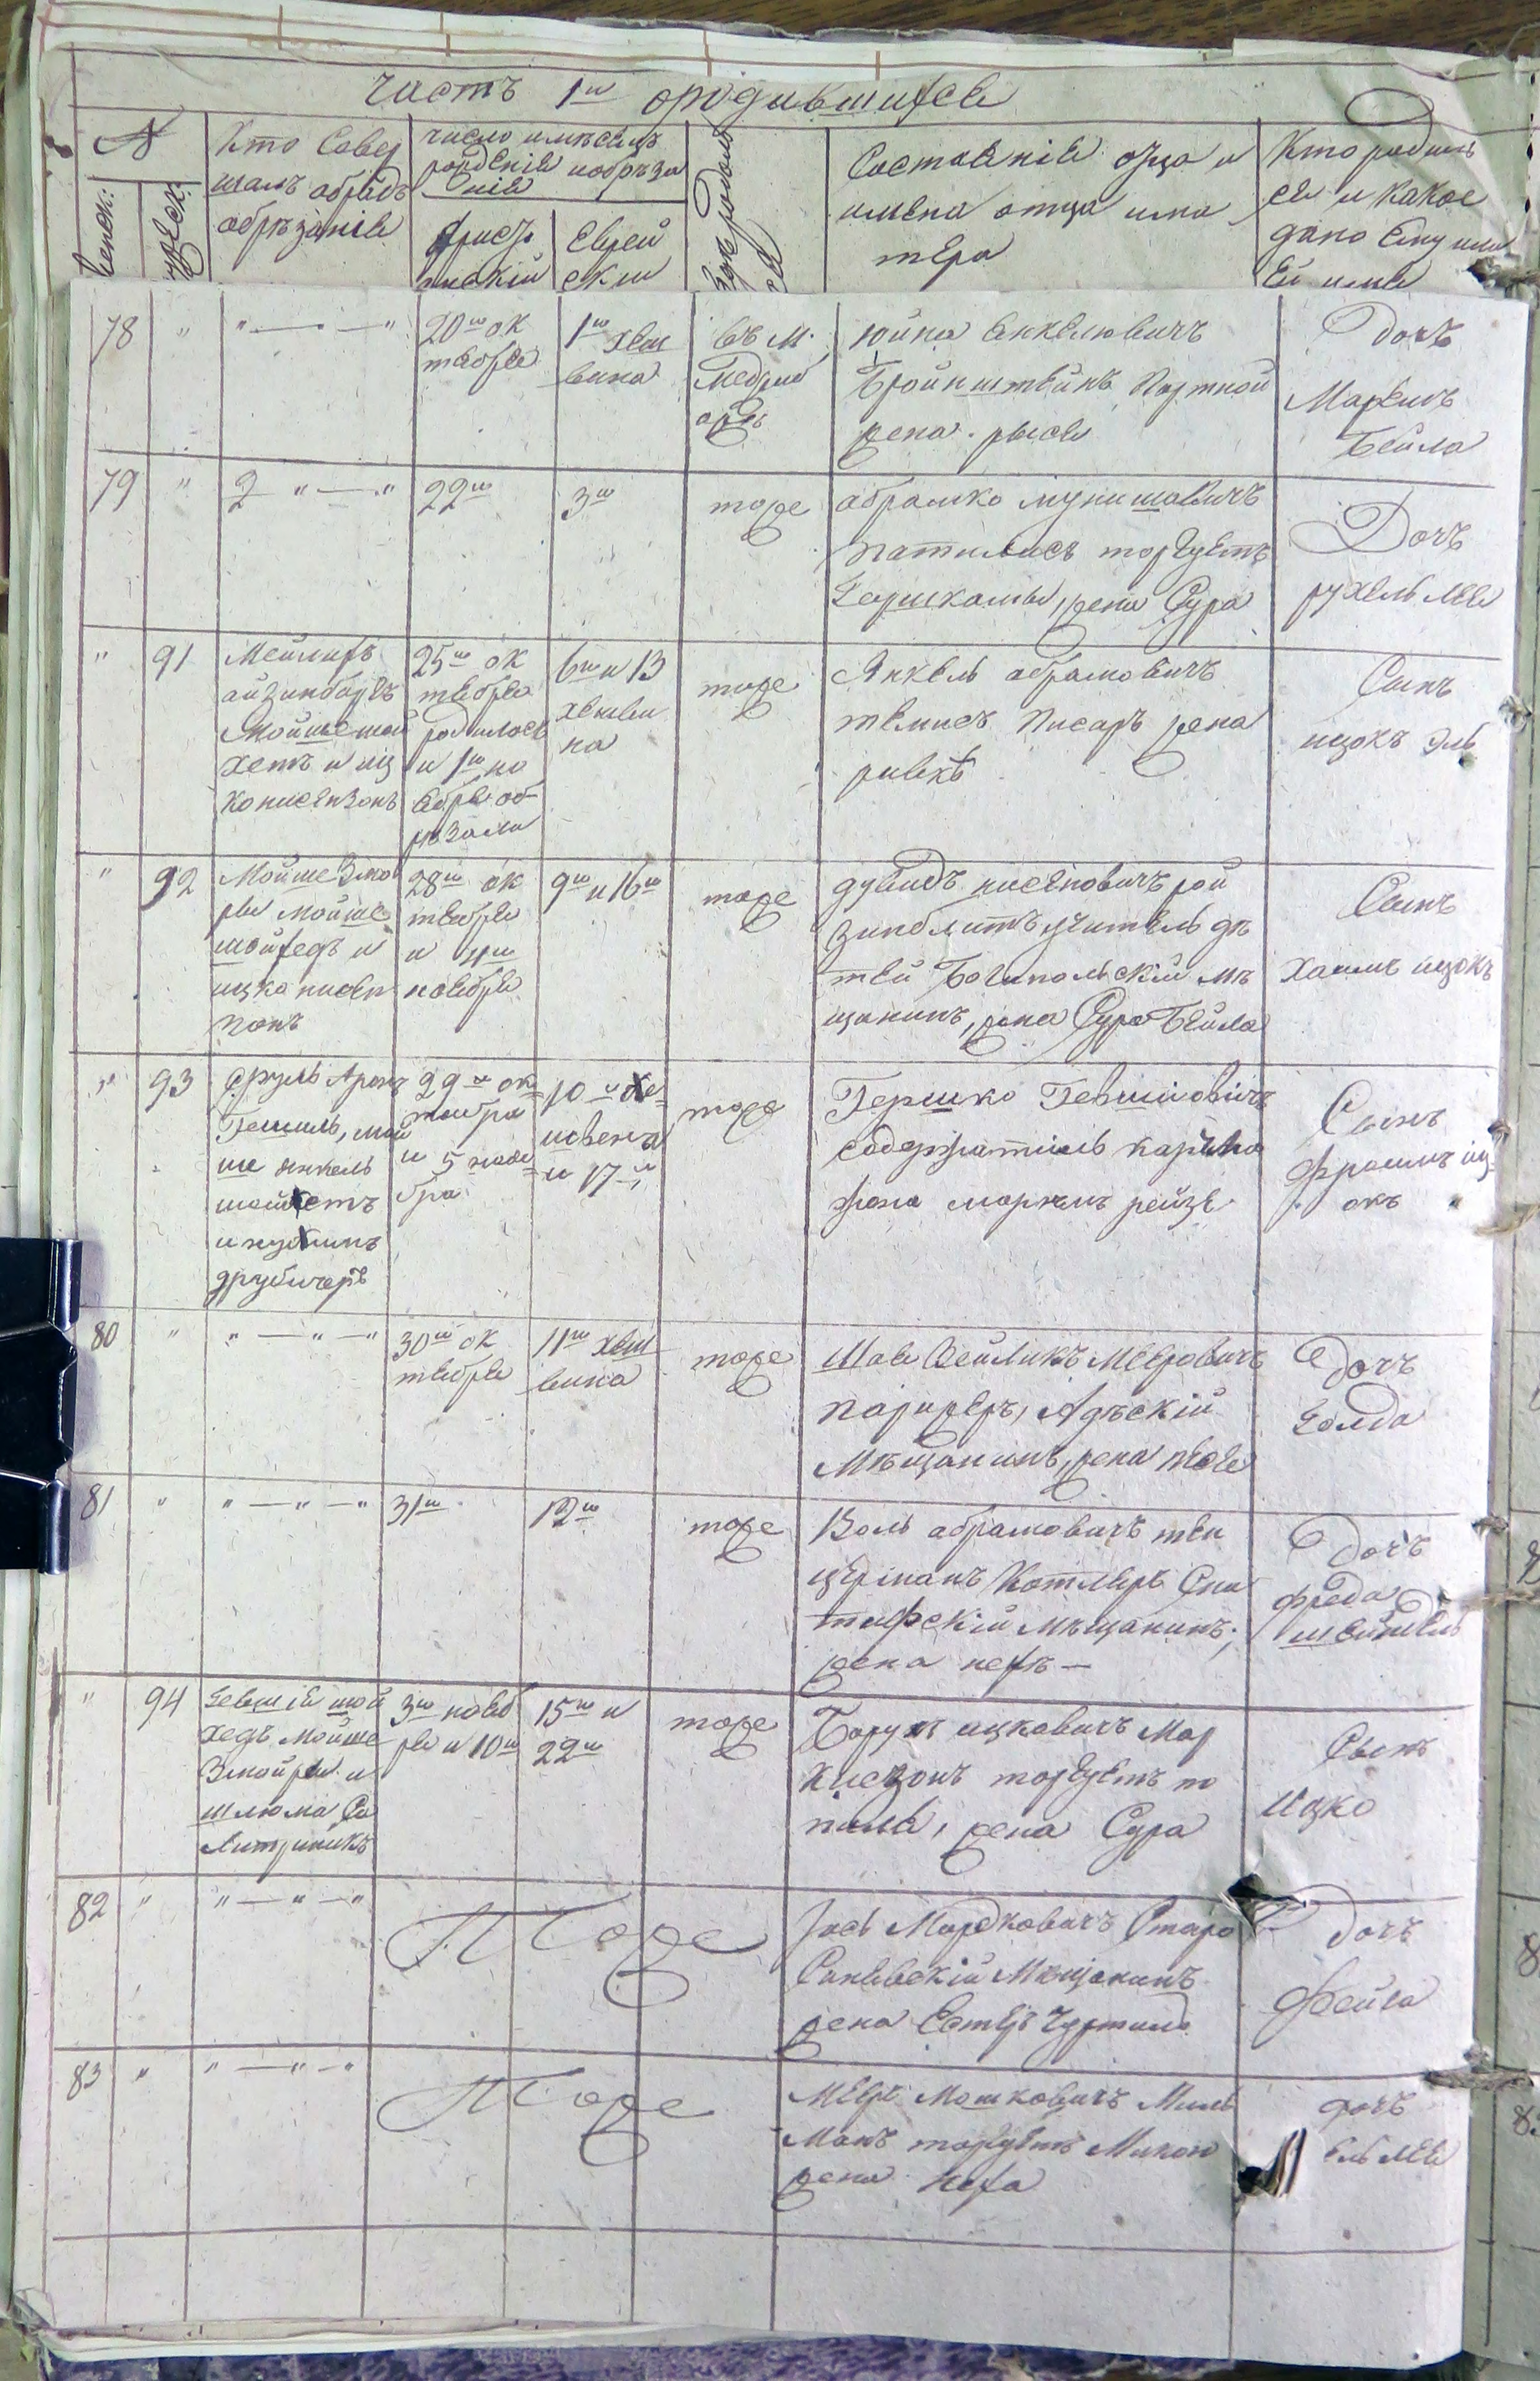 часть 1ш ородившихся
№
женск:
мужеск:
Кто Совер
шалъ абрядъ
абрѣзанія
число имѣсецъ
рожденія иобрѣза
нія
Христі
анскій
Еврей
скіи
Гдѣ родил
ся
Состояніе отца и
имена отца има
тера
Кто родил
ся и какое
дано Ему или
Ей имя
78 " "—·—" 20ш ок
тября
1ш хеш
вина
въ м.
Меджиб
ожъ
юйна Янкелювичъ
Бройнштейнъ Портной
жена рыся
Дочъ
Маріемъ
Бейла
79 " 2 "—·" 22ш 3ш тоже
абрамко мунишовичъ
торгуетъ
Горшками, жена Сура
Дочъ
рухель лея
" 91 Мейлихъ
айзинбергъ
Мойше шой
хетъ и иц
ко нисензонъ
25ш ок
тября
родилось
и 1ш но
ября об
рѣзали
6ш и 13
хешви
на
тоже
Янкель абрамовичъ
темисъ Писаръ жена
ривкѣ
Сынъ
ицокъ Эль
" 92 Мойше Змо
ра мойше
шойхедъ и
ицко нисен
зонъ
28ш ок
тября
и 4ш
ноября
9ш и 16ш тоже
дувидъ нисеновичъ рой
зинблитъ учитель дѣ
тей Богипольскій мѣ
щанинъ, жена Сура Бейла
Сынъ
Хаимъ ицокъ
" 93 Сруль Аронъ
Гешиль, мой
ше янкель
шойхетъ
и нухимъ
друбичеръ
29ш ок=
тибра
и 5 ноя=
бра
10 и хе=
швена
и 17ш
тоже
Гершко Гевшіовичъ
Содержатиль карчма
жона маріемъ рейзя
Сынъ
Фроимъ иц=
окъ
80 " "—"—" 30ш ок
тября
11ш хеш
вина
тоже
Шая Зейликъ Мееровичъ
Адѣскій
Мѣщанинъ, жена
Дочъ
Голда
81 " "—"—" 31ш 12ш тоже
Волъ абрамовичъ
Котлеръ Сна
тифскій мѣщанинъ,
жена неха —
Дочъ
фрейда
шейндель
" 94 Гевшія шой
хедъ Мойше
Змойра и
шлюма Са
литриникъ
3ш нояб
ря и 10ш
15ш и
22ш
тоже
Борухъ ицковичъ Мар
кисзонъ торгуетъ то
пилы, жена Сура
Сынъ
Ицко
82 " "—"—" Тоже
Іось Мардковичъ Старо
Синявскій Мѣщанинъ
жена Естеръ
дочъ
Фейга
83 " "—"—" Тоже
Меер Мошковичъ Миль
манъ торгуетъ
жена Неха
дочъ
ель лея